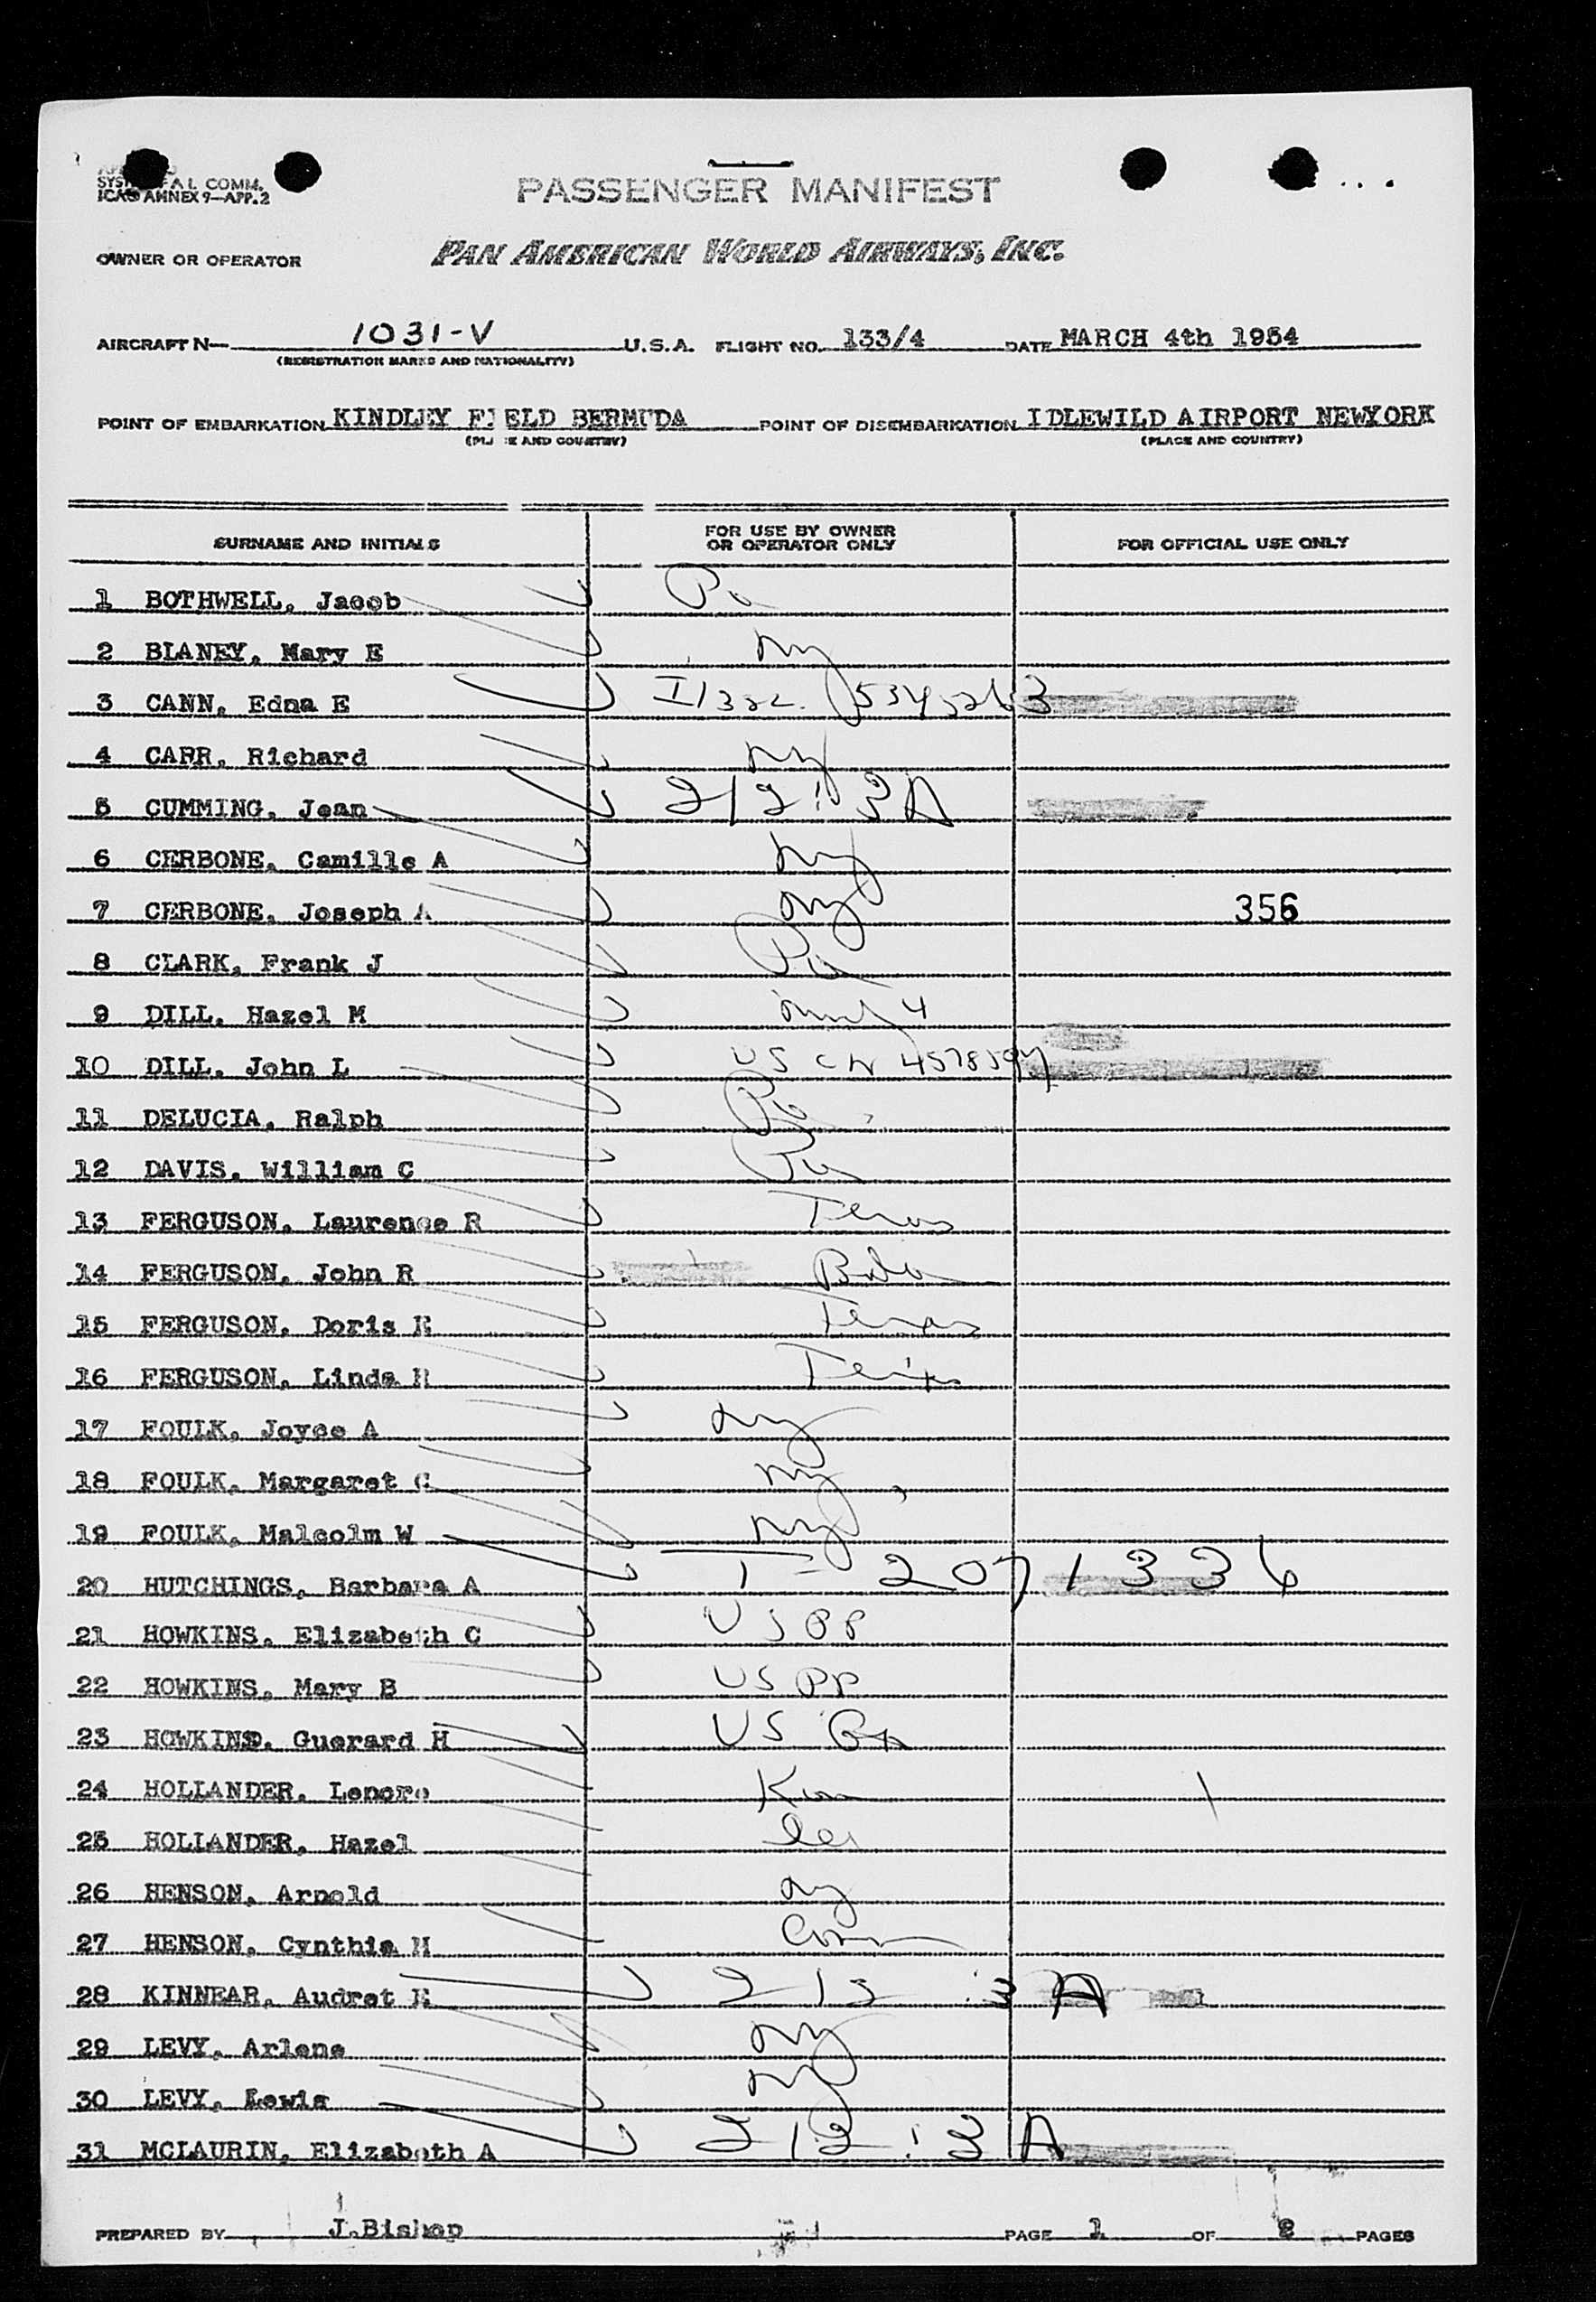 SYST FAL COMM.
ICAO ANNEX 9—APP. 2
PASSENGER MANIFEST
OWNER OR OPERATOR PAN AMERICAN WORLD AIRWAYS, INC.
AIRCRAFT N— 1031-V U.S.A. FLIGHT NO. 133/4 DATE MARCH 4th 1954
(REGISTRATION MARKS AND NATIONALITY)
POINT OF EMBARKATION KINDLEY FIELD BERMUDA POINT OF DISEMBARKATION IDLEWILD AIRPORT NEWYORK
(PLACE AND COUNTRY) (PLACE AND COUNTRY)
SURNAME AND INITIALS FOR USE BY OWNER OR OPERATOR ONLY FOR OFFICIAL USE ONLY
1 BOTHWELL, Jacob Pa
2 BLANEY, Mary E NY
3 CANN, Edna E
4 CARR, Richard NY
5 CUMMING, Jean 212:3A
6 CERBONE, Camille A NY
7 CERBONE, Joseph A NY 356
8 CLARK, Frank J Pa
9 DILL, Hazel M
10 DILL, John L US CN
11 DELUCIA, Ralph Pa
12 DAVIS, William C Pa
13 FERGUSON, Laurence R Texas
14 FERGUSON, John R
15 FERGUSON, Doris R Texas
16 FERGUSON, Linda R Texas
17 FOULK, Joyce A NY
18 FOULK, Margaret C NY
19 FOULK, Malcolm W NY
20 HUTCHINGS, Barbara A T- 2071336
21 HOWKINS, Elizabeth C US PP
22 HOWKINS, Mary B US PP
23 HOWKINS, Guerard H US
24 HOLLANDER, Lenore
25 HOLLANDER, Hazel
26 HENSON, Arnold NY
27 HENSON, Cynthia M Conn
28 KINNEAR, Audret E 212:3 A
29 LEVY, Arlene NY
30 LEVY, Lewis NY
31 MCLAURIN, Elizabeth A 212:3 A
PREPARED BY J.Bishop PAGE 1 OF 2 PAGES